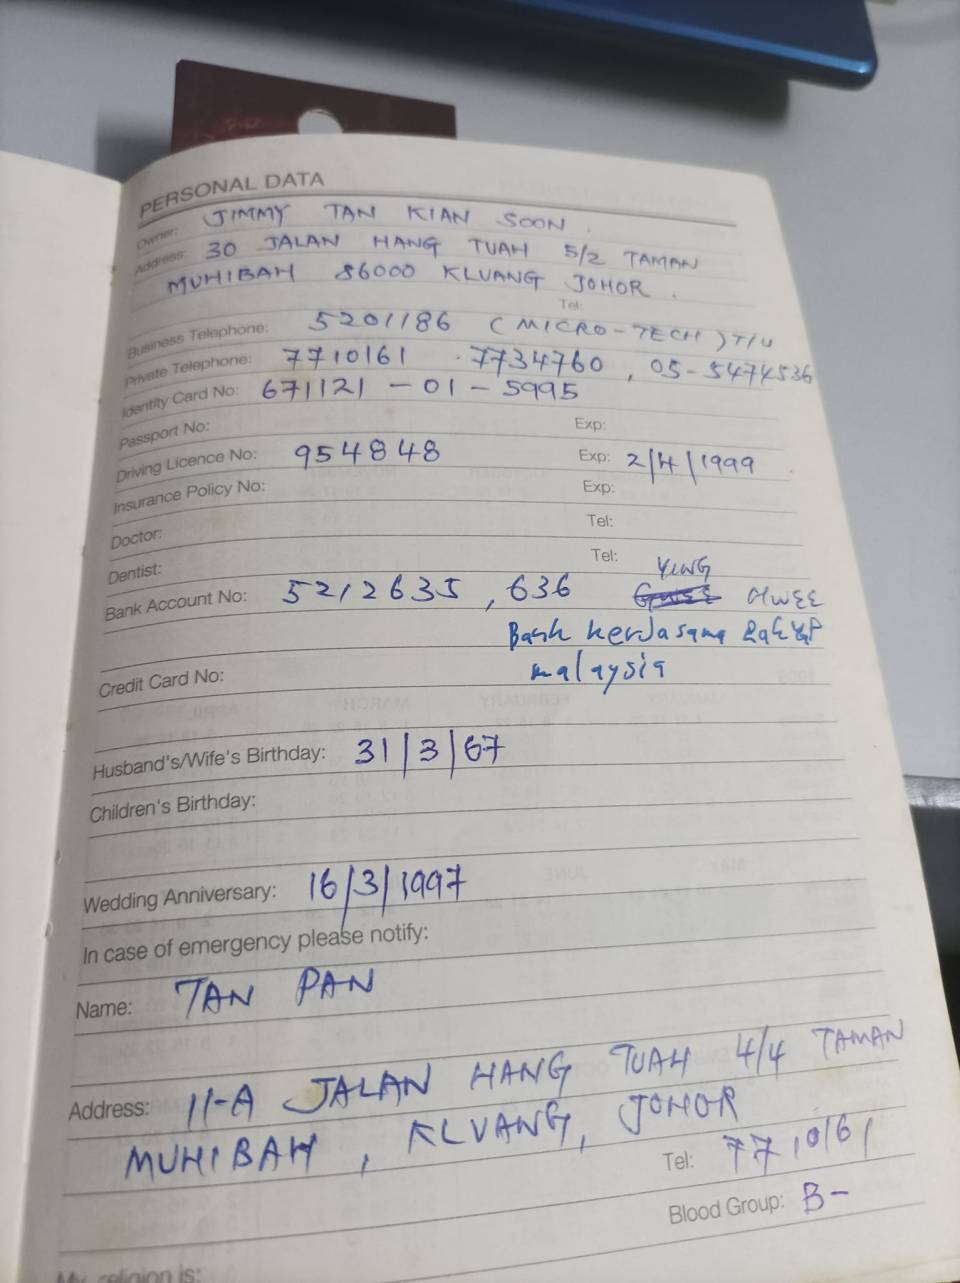 PERSONAL DATA
Owner: JIMMY TAN KIAN SOON.
Address: 30 JALAN HANG TUAH 5/2 TAMAN
MUHIBAH 86000 KLUANG JOHOR.
Tel:
Business Telephone: 5201186 (MICRO-TECH) T/U
Private Telephone: 7710161 . 7734760, 05-5474536
Identity Card No: 671121-01-5995
Passport No: Exp:
Driving Licence No: 954848 Exp: 2/4/1999
Insurance Policy No: Exp:
Doctor: Tel:
Dentist: Tel:
YENG
Bank Account No: 5212635, 636 HWEE
Bank kerjasama Rakyat
malaysia
Credit Card No:
Husband's/Wife's Birthday: 31/3/67
Children's Birthday:
Wedding Anniversary: 16/3/1997
In case of emergency please notify:
Name: TAN PAN
Address: 11-A JALAN HANG TUAH 4/4 TAMAN
MUHIBAH, KLUANG, JOHOR
Tel: 7710161
Blood Group: B-
My religion is: